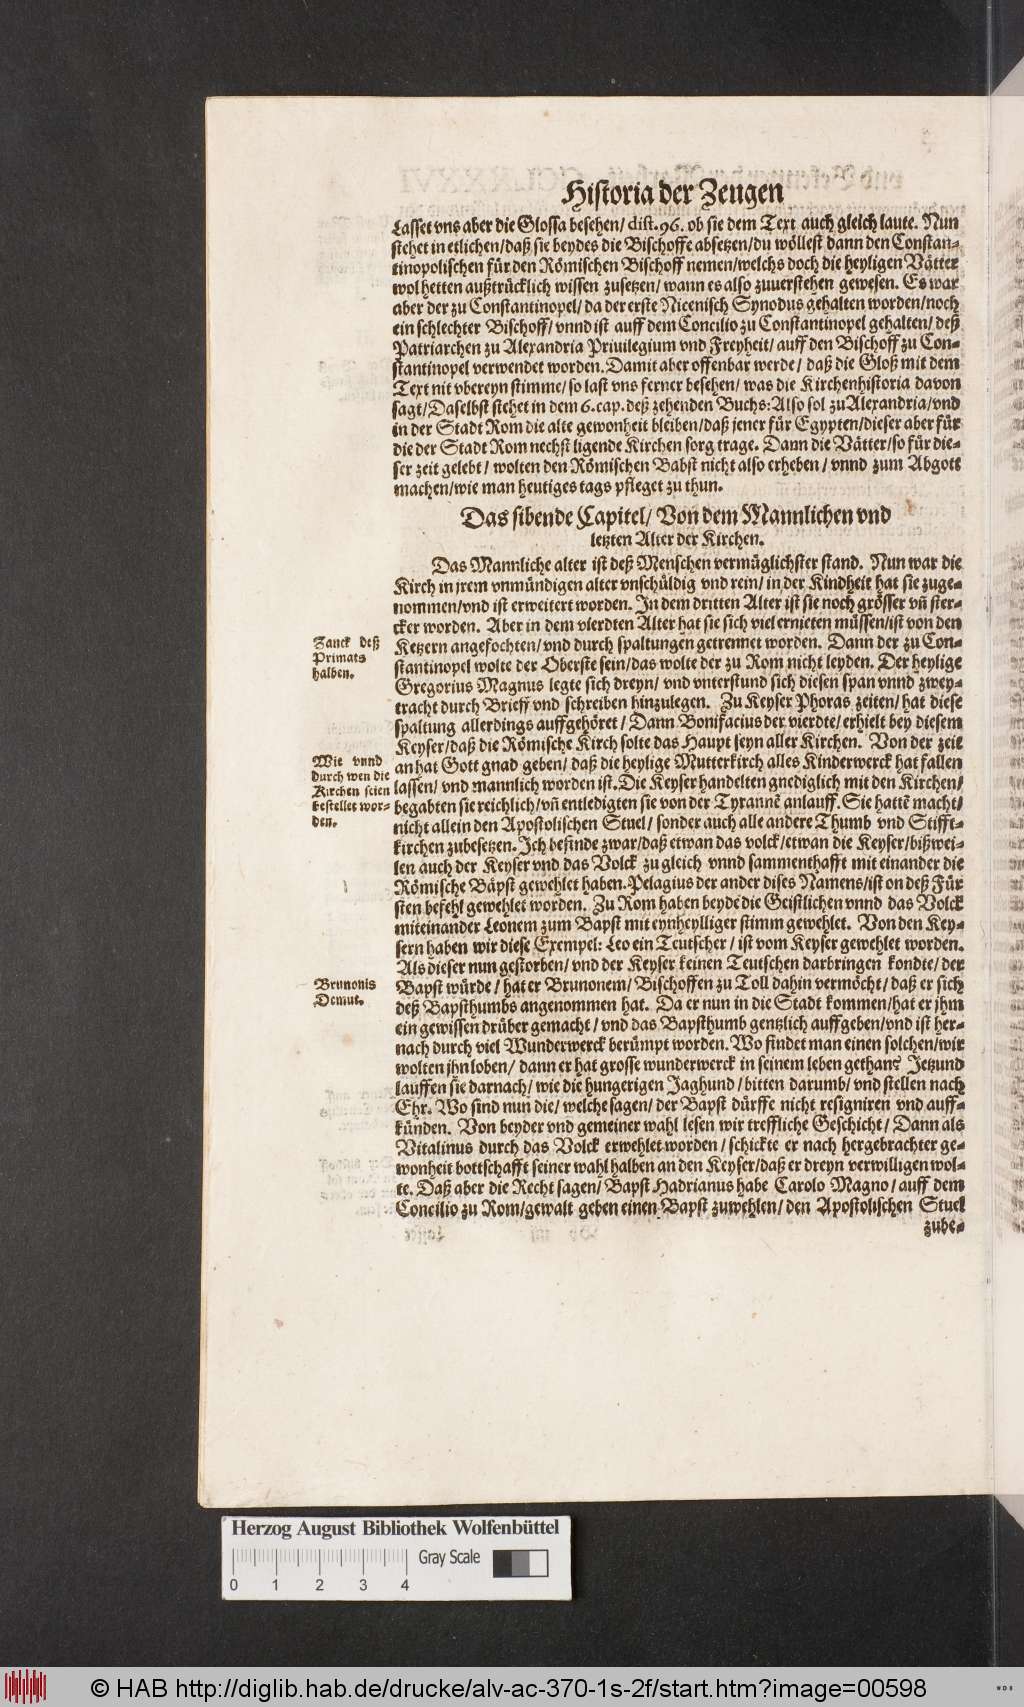 Historia der Zeugen
Lasset vns aber die Glossa besehen/ dist. 96. ob sie dem Text auch gleich laute. Nun
stehet in etlichen/ daß sie beydes die Bischoffe absetzen/ du wöllest dann den Constan-
tinopolischen für den Römischen Bischoff nemen/ welchs doch die heyligen Vätter
wol hetten außtrücklich wissen zusetzen/ wann es also zuuerstehen gewesen. Es war
aber der zu Constantinopel/ da der erste Nicenisch Synodus gehalten worden/ noch
ein schlechter Bischoff/ vnnd ist auff dem Concilio zu Constantinopel gehalten/ deß
Patriarchen zu Alexandria Priuilegium vnd Freyheit/ auff den Bischoff zu Con-
stantinopel verwendet worden. Damit aber offenbar werde/ daß die Gloß mit dem
Text nit vbereyn stimme/ so last vns ferner besehen/ was die Kirchenhistoria davon
sagt/ Daselbst stehet in dem 6. cap. deß zehenden Buchs: Also sol zu Alexandria/ vnd
in der Stadt Rom die alte gewonheit bleiben/ daß jener für Egypten/ dieser aber für
die der Stadt Rom nechst ligende Kirchen sorg trage. Dann die Vätter/ so für die-
ser zeit gelebt/ wolten den Römischen Babst nicht also erheben/ vnnd zum Abgott
machen/ wie man heutiges tags pfleget zu thun.
Das sibende Capitel/ Von dem Mannlichen vnd
letzten Alter der Kirchen.
Das Mannliche alter ist deß Menschen vermüglichster stand. Nun war die
Kirch in jrem vnmündigen alter vnschüldig vnd rein/ in der Kindheit hat sie zuge-
nommen/ vnd ist erweitert worden. In dem dritten Alter ist sie noch grösser vñ ster-
cker worden. Aber in dem vierdten Alter hat sie sich viel ernieten müssen/ ist von den
Ketzern angefochten/ vnd durch spaltungen getrennet worden. Dann der zu Con-
stantinopel wolte der Oberste sein/ das wolte der zu Rom nicht leyden. Der heylige
Gregorius Magnus legte sich dreyn/ vnd vnterstund sich diesen span vnnd zwey-
tracht durch Brieff vnd schreiben hinzulegen. Zu Keyser Phoras zeiten/ hat diese
spaltung allerdings auffgehöret/ Dann Bonifacius der vierdte/ erhielt bey diesem
Keyser/ daß die Römische Kirch solte das Haupt seyn aller Kirchen. Von der zeit
an hat Gott gnad geben/ daß die heylige Mutterkirch alles Kinderwerck hat fallen
lassen/ vnd mannlich worden ist. Die Keyser handelten gnediglich mit den Kirchen/
begabten sie reichlich/ vñ entledigten sie von der Tyrannẽ anlauff. Sie hattẽ macht/
nicht allein den Apostolischen Stuel/ sonder auch alle andere Thumb vnd Stifft-
kirchen zubesetzen. Ich befinde zwar/ daß etwan das volck/ etwan die Keyser/ bißwei-
len auch der Keyser vnd das Volck zu gleich vnnd sammenthafft mit einander die
Römische Bäpst gewehlet haben. Pelagius der ander dises Namens/ ist on deß Für
sten befehl gewehlet worden. Zu Rom haben beyde die Geistlichen vnnd das Volck
miteinander Leonem zum Bapst mit eynheylliger stimm gewehlet. Von den Key-
sern haben wir diese Exempel: Leo ein Teutscher/ ist vom Keyser gewehlet worden.
Als dieser nun gestorben/ vnd der Keyser keinen Teutschen darbringen kondte/ der
Bapst würde/ hat er Brunonem/ Bischoffen zu Toll dahin vermöcht/ daß er sich
deß Bapsthumbs angenommen hat. Da er nun in die Stadt kommen/ hat er jhm
ein gewissen drüber gemacht/ vnd das Bapsthumb gentzlich auffgeben/ vnd ist her-
nach durch viel Wunderwerck berümpt worden. Wo findet man einen solchen/ wir
wolten jhn loben/ dann er hat grosse wunderwerck in seinem leben gethan? Jetzund
lauffen sie darnach/ wie die hungerigen Jaghund/ bitten darumb/ vnd stellen nach
Ehr. Wo sind nun die/ welche sagen/ der Bapst dürffe nicht resigniren vnd auff-
künden. Von beyder vnd gemeiner wahl lesen wir treffliche Geschicht/ Dann als
Vitalinus durch das Volck erwehlet worden/ schickte er nach hergebrachter ge-
wonheit bottschafft seiner wahl halben an den Keyser/ daß er dreyn verwilligen wol-
te. Daß aber die Recht sagen/ Bapst Hadrianus habe Carolo Magno/ auff dem
Concilio zu Rom/ gewalt geben einen Bapst zuwehlen/ den Apostolischen Stuel
zube-
Zanck deß
Primats
halben.
Wie vnnd
durch wen die
Kirchen seien
bestellet wor-
den.
Brunonis
Demut.
Herzog August Bibliothek Wolfenbüttel
Gray Scale
0 1 2 3 4
© HAB http://diglib.hab.de/drucke/alv-ac-370-1s-2f/start.htm?image=00598